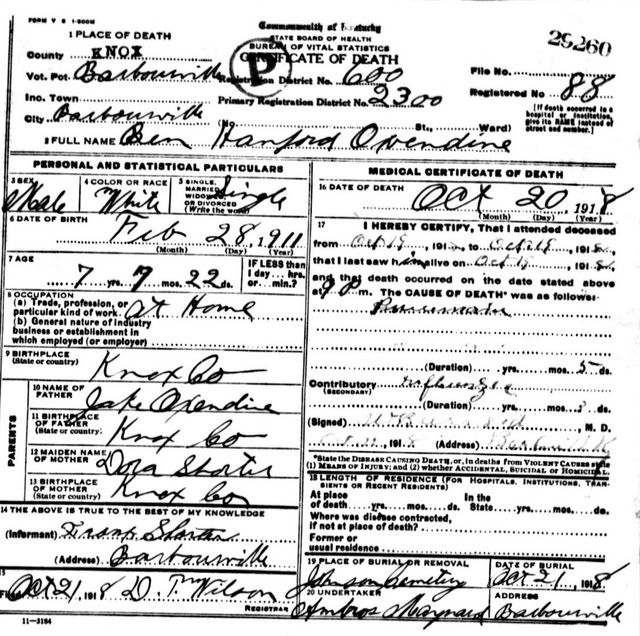 FORM V S 1-500M
Commonwealth of Kentucky
STATE BOARD OF HEALTH
BUREAU OF VITAL STATISTICS
CERTIFICATE OF DEATH
P
29260
1 PLACE OF DEATH
County KNOX
Vot. Pct. Barbourville Registration District No. 600 File No.
Inc. Town Primary Registration District No. 2300 Registered No. 88
City Barbourville (No. St., Ward)
[If death occurred in a hospital or institution, give its NAME instead of street and number.]
2 FULL NAME Ben Hanford Oxendine
PERSONAL AND STATISTICAL PARTICULARS
3 SEX Male
4 COLOR OR RACE White
5 SINGLE, MARRIED, WIDOWED, OR DIVORCED (Write the word) Single
6 DATE OF BIRTH Feb 28, 1911
(Month) (Day) (Year)
7 AGE 7 yrs. 7 mos. 22 ds.
IF LESS than 1 day... hrs. or... min.?
8 OCCUPATION
(a) Trade, profession, or particular kind of work. at Home
(b) General nature of industry business or establishment in which employed (or employer)
9 BIRTHPLACE (State or country) Knox Co
PARENTS
10 NAME OF FATHER Jake Oxendine
11 BIRTHPLACE OF FATHER (State or country) Knox Co
12 MAIDEN NAME OF MOTHER Dora Shorter
13 BIRTHPLACE OF MOTHER (State or country) Knox Co
14 THE ABOVE IS TRUE TO THE BEST OF MY KNOWLEDGE
(Informant) Shorter
(Address) Barbourville
15
Oct 21, 1918 D. T. Wilson
REGISTRAR
11-3184
MEDICAL CERTIFICATE OF DEATH
16 DATE OF DEATH Oct 20, 1918
(Month) (Day) (Year)
17 I HEREBY CERTIFY, That I attended deceased
from Oct 19, 191 to Oct 19, 1918
that I last saw him alive on Oct 19, 1918
and that death occurred on the date stated above
at 9 P m. The CAUSE OF DEATH* was as follows:
(Duration) yrs. mos. 5 ds.
Contributory Influenza
(SECONDARY)
(Duration) yrs. mos. ds.
(Signed) M. D.
1918 (Address)
*State the DISEASE CAUSING DEATH, or, in deaths from VIOLENT CAUSES state (1) MEANS OF INJURY; and (2) whether ACCIDENTAL, SUICIDAL or HOMICIDAL.
18 LENGTH OF RESIDENCE (FOR HOSPITALS, INSTITUTIONS, TRANSIENTS OR RECENT RESIDENTS)
At place of death yrs. mos. ds. In the State yrs. mos. ds.
Where was disease contracted, if not at place of death?
Former or usual residence
19 PLACE OF BURIAL OR REMOVAL Johnson Cemetery
DATE OF BURIAL Oct 21, 1918
20 UNDERTAKER Ambros Maynard
ADDRESS Barbourville